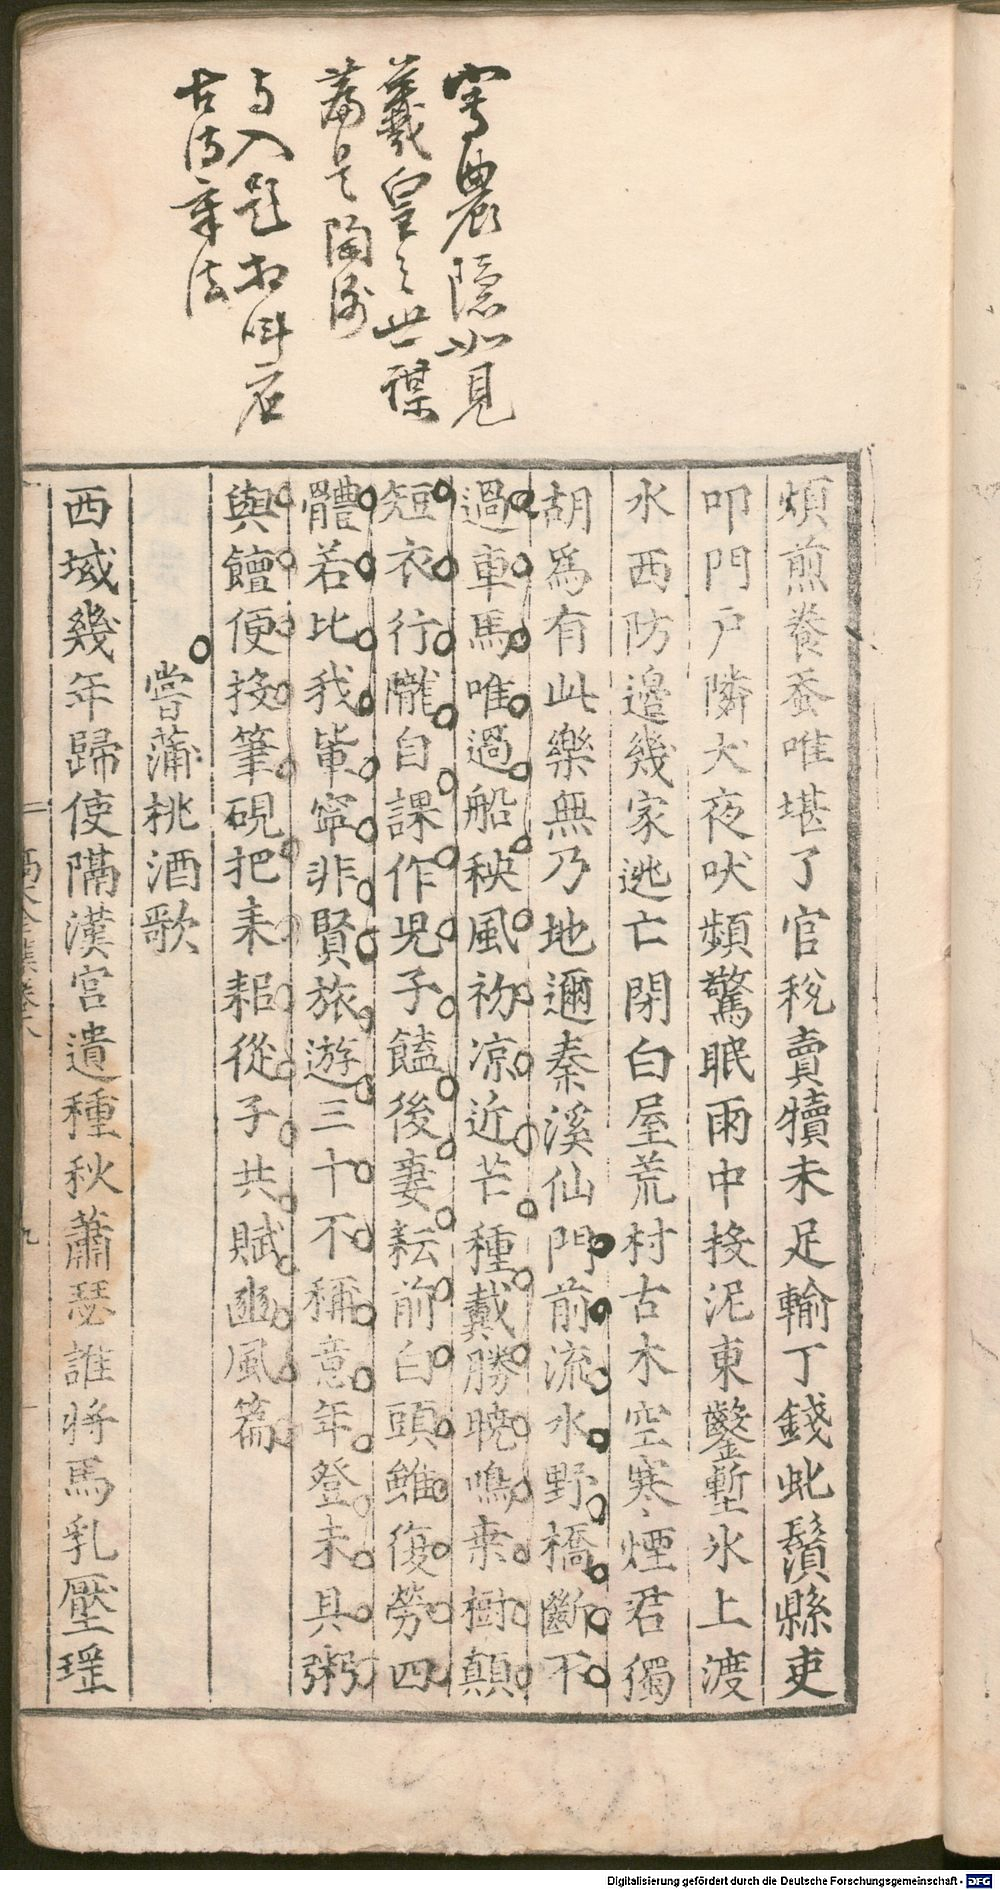 寫農隱如見
羲皇之世襟
與入題
古詩章法
煩煎養蚕唯堪了官稅賣犢未足輸丁錢虬鬚縣吏
叩門戸隣犬夜吠頻驚眠雨中接泥東鑿塹氷上渡
水西防邊幾家逃亡閉白屋荒村古木空寒煙君獨
胡爲有此樂無乃地邇秦溪仙門前流水野橋斷不
過車馬唯過船秧風初凉近芒種戴勝曉鳴桒樹顛
短衣行隴自課作兒子饁後妻耘前白頭雖復勞四
體若比我軰寧非賢旅遊三十不稱意年登未具粥
與饘便投筆硯把耒耜從子共賦豳風篇
嘗蒲桃酒歌
西域幾年歸使隔漢宮遺種秋蕭瑟誰將馬乳壓瑶
九
Digitalisierung gefördert durch die Deutsche Forschungsgemeinschaft - DFG